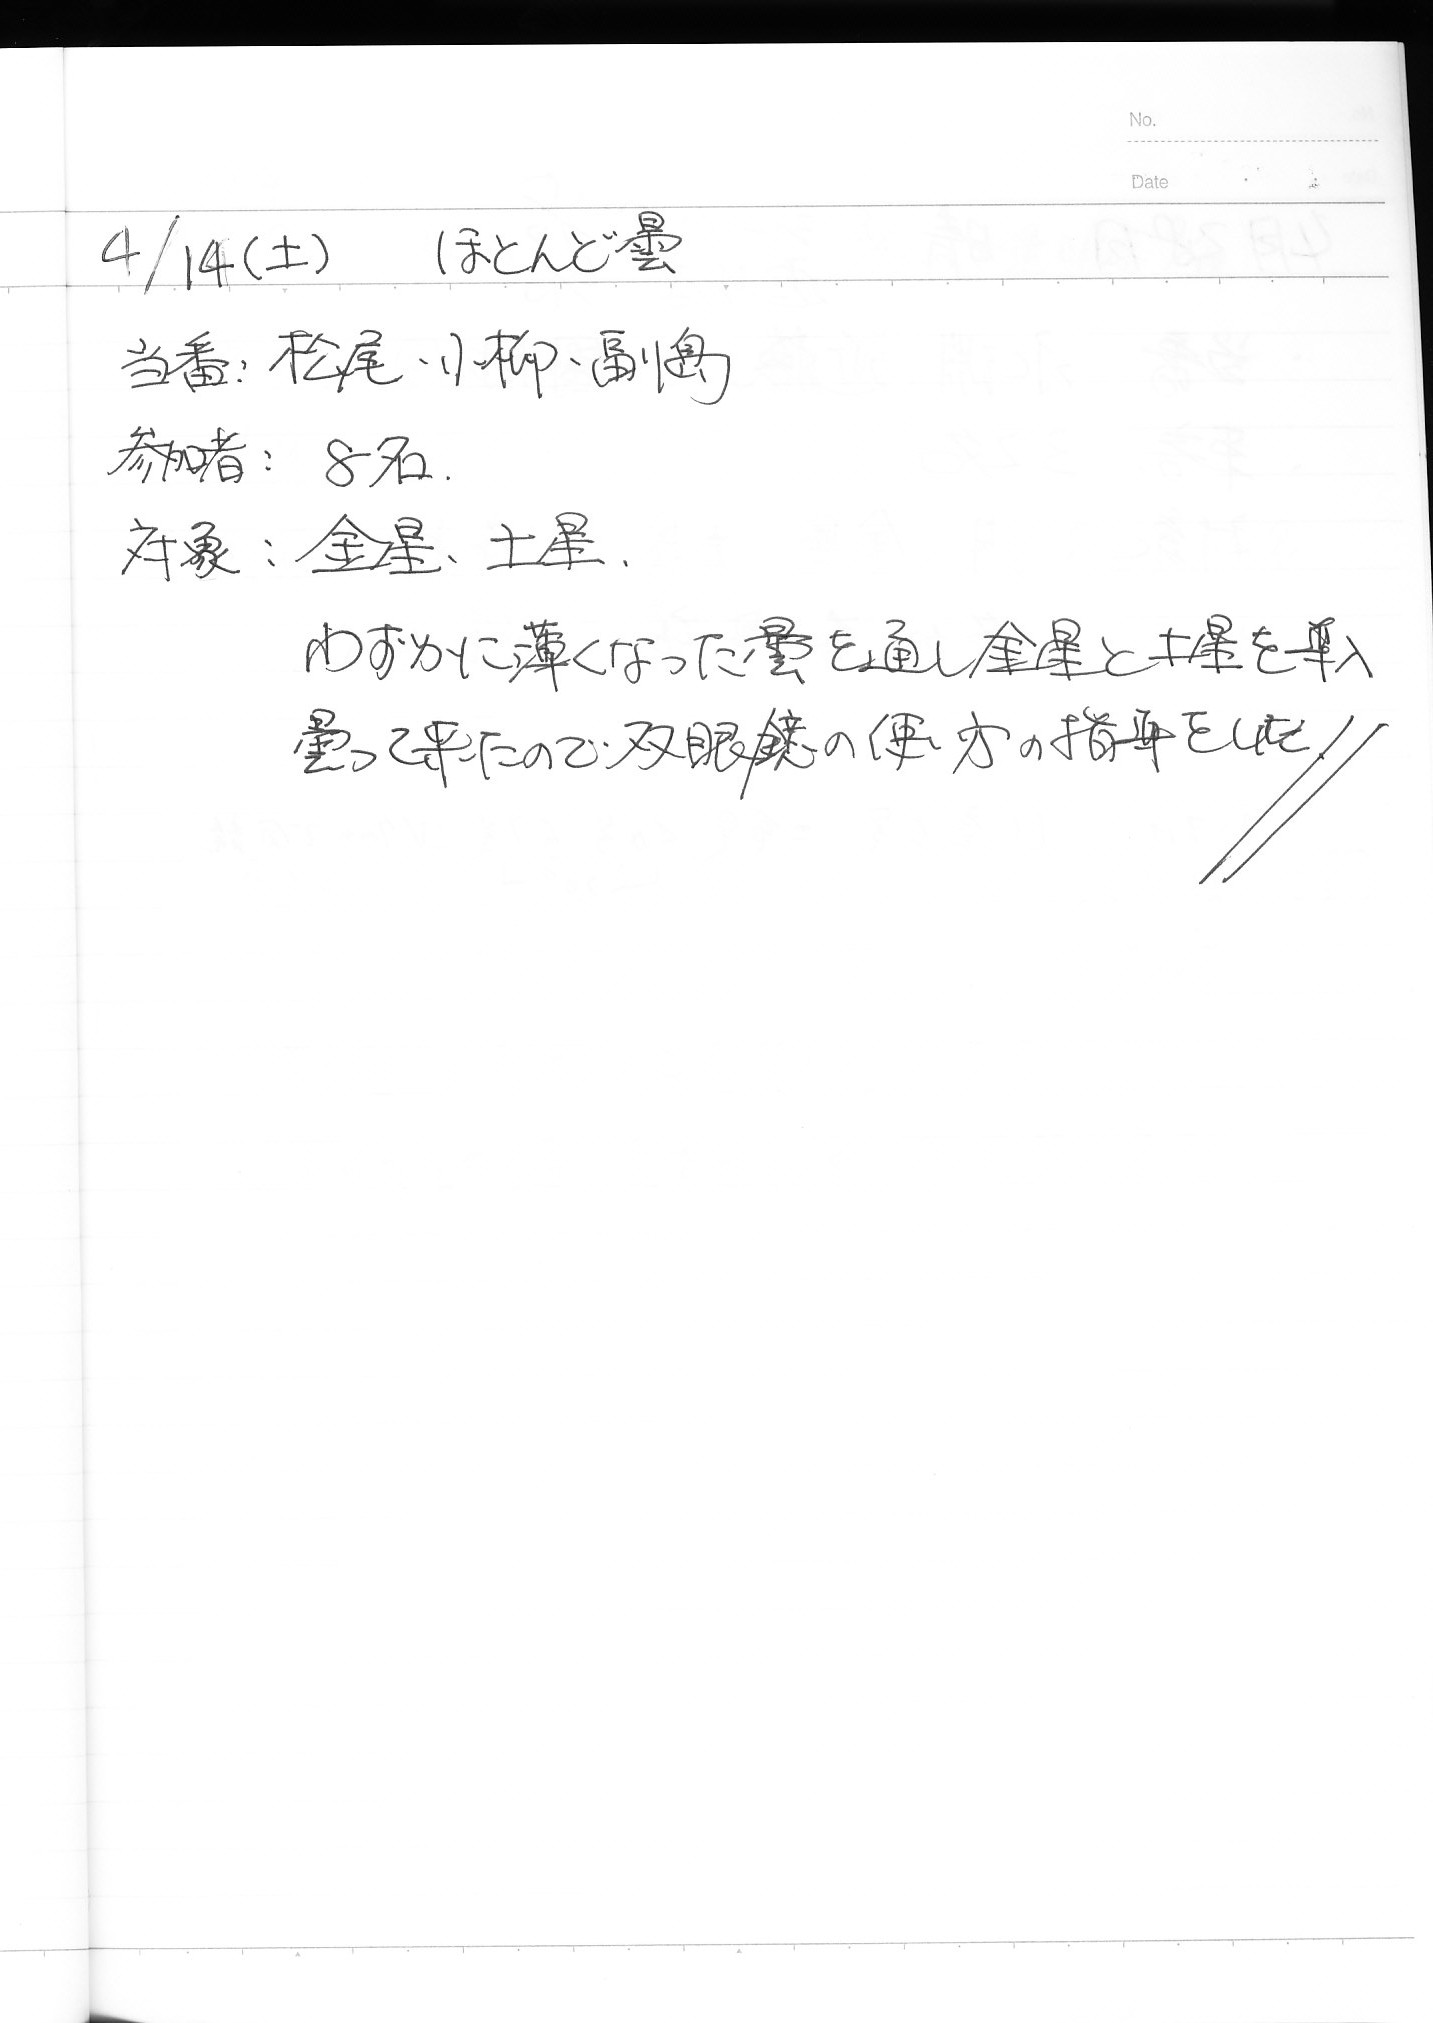 No.
Date
4/14(土) ほとんど曇
当番: 松尾・小柳・副島
参加者: 8名.
対象: 金星、土星.
わずかに薄くなった雲を通し金星と土星を導入
曇って来たので双眼鏡の使い方の指導をした